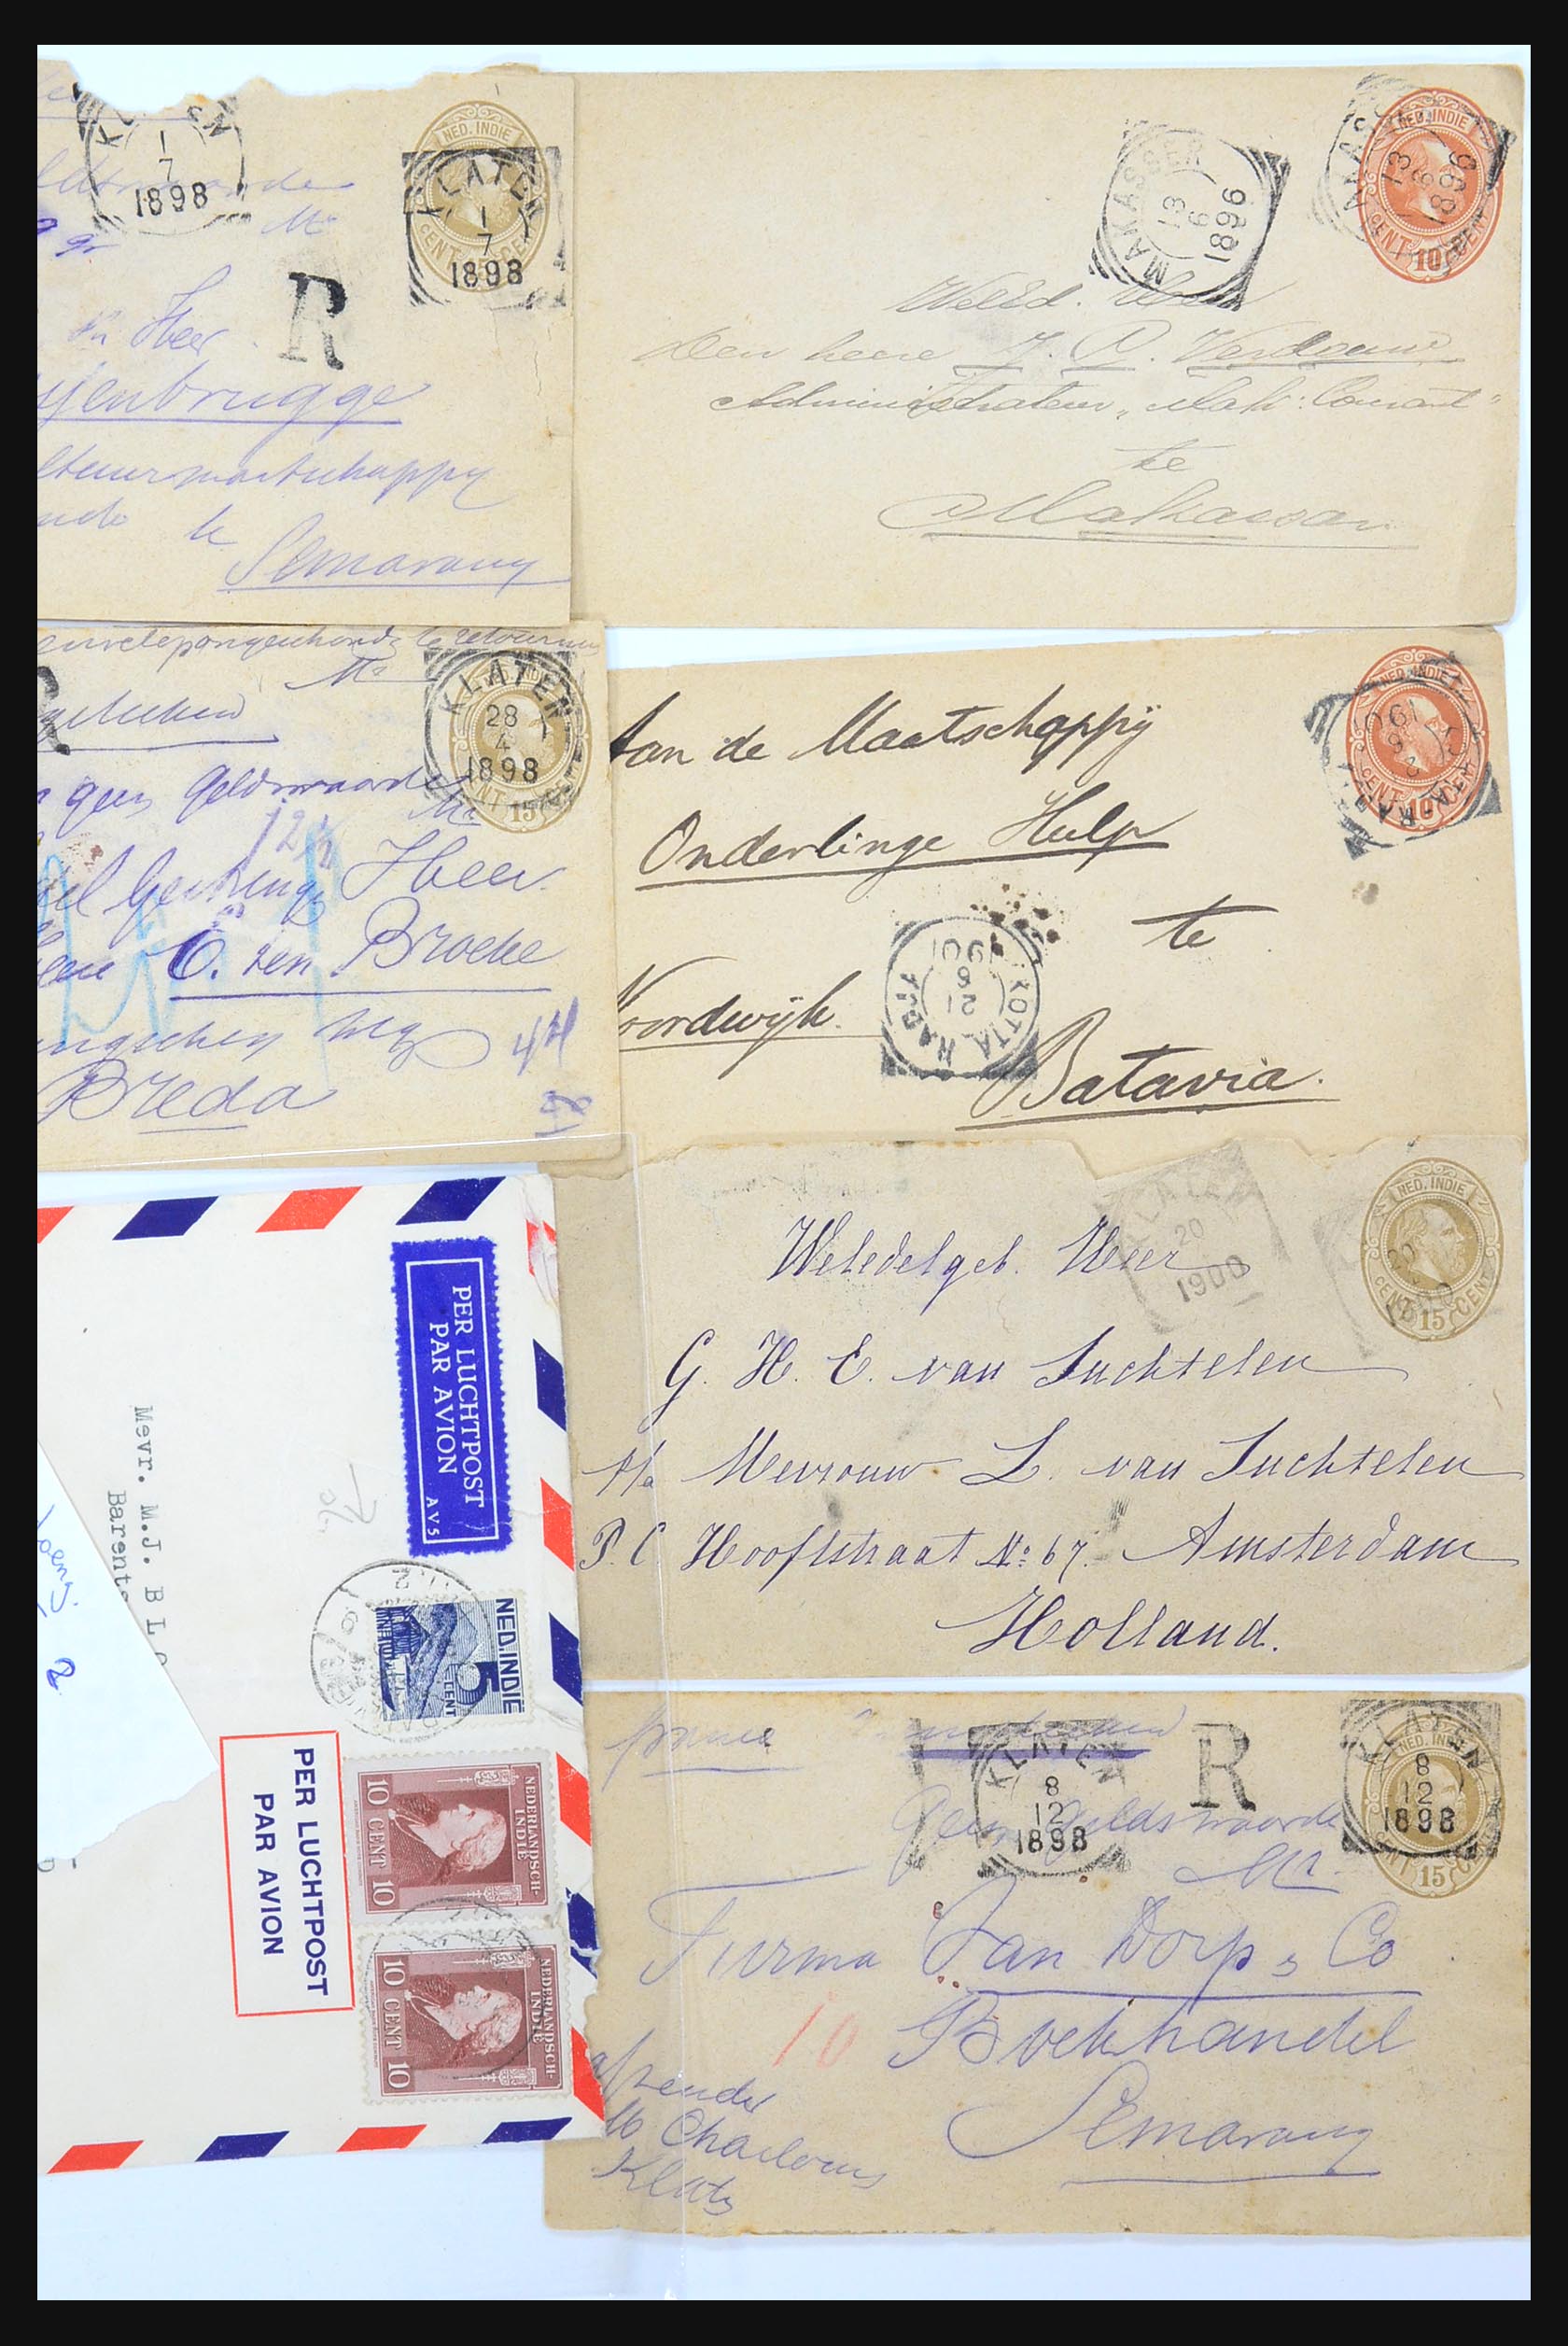 KLATEN
1
7
1898
NED. INDIE
KLATEN
1
7
1898
R
Heer
Semarang
MAKASSER
13
6
1896
NED. INDIE
10
CENT
13
6
1896
Den heere J. P. Verdouw
Administrateur „Mak: Courant"
te
Makassar
te retourneren
KLATEN
28
4
1898
15
geen Geldswaarde
12½
Heer
C. ten Broeke
weg 44
Breda
Aan de Maatschappij
Onderlinge Hulp
te
Noordwijk.
Batavia.
NED. INDIE
CENT 10 CENT
KOTTA RADJA
KOTTA RADJA
21
6
1901
Weledelgeb. Heer
G. H. E. van Suchtelen
p/a Mevrouw L. van Suchtelen
P. C Hooftstraat No: 67. Amsterdam
Holland.
KLATEN
20
1900
NED. INDIE
CENT 15 CENT
1900
PER LUCHTPOST
PAR AVION
AV5
Mevr. M.J. BL
Barents
NED. INDIE
5
CENT
PER LUCHTPOST
PAR AVION
NEDERLANDSCH-
INDIE
10 CENT 10
NEDERLANDSCH-
INDIE
10 CENT 10
franco Aangeteekend
KLATEN
8
12
1898
R
KLATEN
8
12
1898
NED. INDIE
15
Geen Geldswaarde
Firma Van Dorp & Co
10
Boekhandel
Semarang
afzender
Klaten